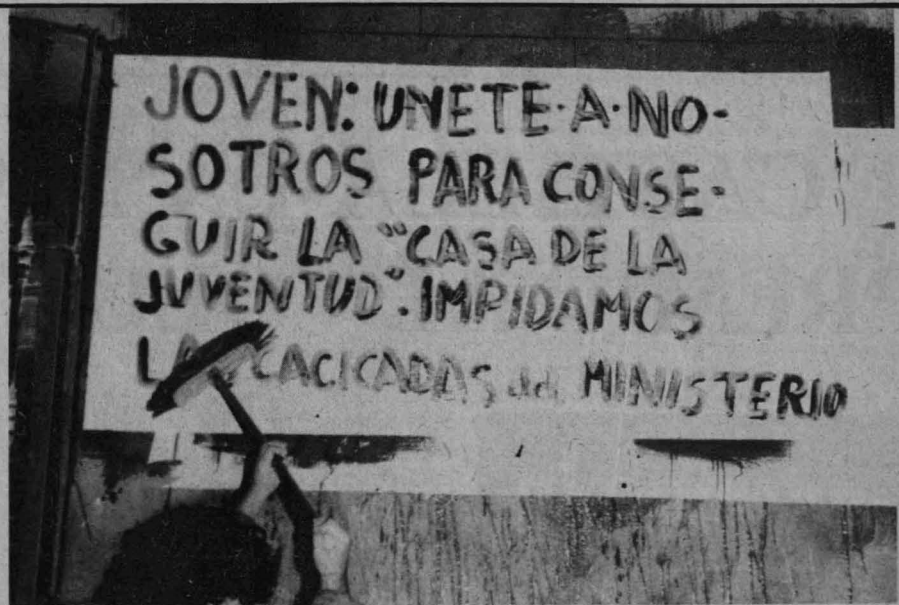 JOVEN: UNETE·A·NO-
SOTROS PARA CONSE-
GUIR LA "CASA DE LA
JUVENTUD". IMPIDAMOS
CACICADAS del MINISTERIO